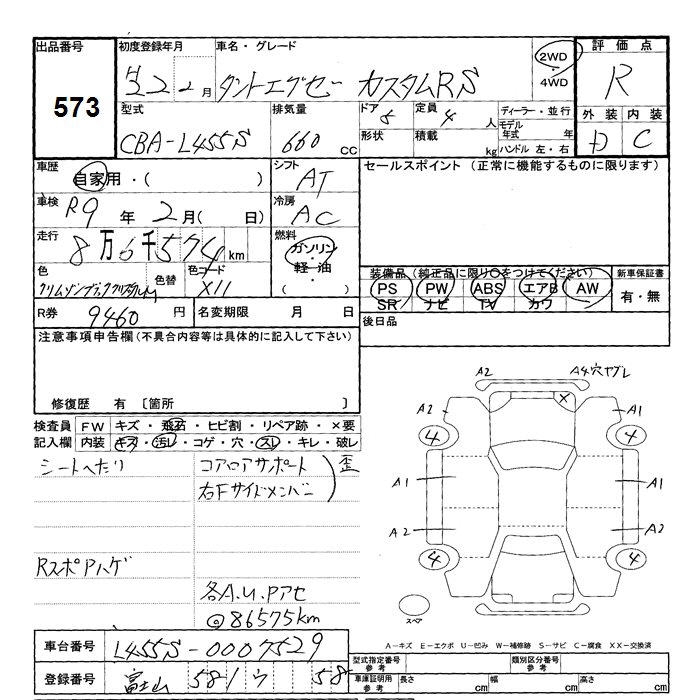 出品番号
573
初度登録年月
H22 2月
車名・グレード
タントエグゼー カスタムRS
2WD
・
4WD
評価点
R
外装 内装
D C
型式
CBA-L455S
排気量
660 cc
ドア
5
定員
4 人
形状
積載
kg
ディーラー・並行
モデル
年式 年
ハンドル 左・右
車歴
自家用・( )
シフト
AT
セールスポイント (正常に機能するものに限ります)
車検
R9年 2月( 日)
冷房
AC
走行
8万6千574km
燃料
ガソリン
・
軽油
・
( )
色
色替
色コード
X11
装備品(純正品に限り○をつけてください)
PS PW ABS エアB AW
SR ナビ TV カワ
新車保証書
有・無
R券
9460 円
名変期限 月 日
後日品
注意事項申告欄(不具合内容等は具体的に記入して下さい)
修復歴 有 〔箇所 〕
検査員
記入欄
FW キズ・飛石・ヒビ割・リペア跡・×要
内装 キズ・汚レ・コゲ・穴・スレ・キレ・破レ
シートへたり
コアロアサポート
右Fサイドメンバー
歪
RスポPハゲ
各A.U.Pアセ
@86575km
A2
A4穴ヤブレ
A2
×
A1
4
4
A1
A1
A2
A2
4
4
スペア
A-キズ E-エクボ U-凹み W-補修跡 S-サビ C-腐食 XX-交換済
車台番号
L455S-0007529
登録番号
富士山 581 ウ 58
型式指定番号
参考
類別区分番号
参考
車庫証明用
参考
長さ cm
幅 cm
高さ cm